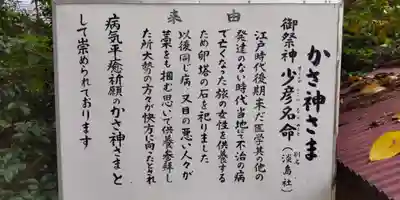 かさ神さま
御祭神 少彦名命(淡島社)
別名
由来
江戸時代後期未だ医学其の他の
発達のない時代当地にて不治の病
で亡くなった旅の女性を供養する
ため卵塔の石を祀りました
以後同じ病 又目の悪い人々が
藁をも掴む思いで供養参拝し
た所大勢の方々が快方に向ったとされ
病気平癒祈願のかさ神さまと
して崇められております